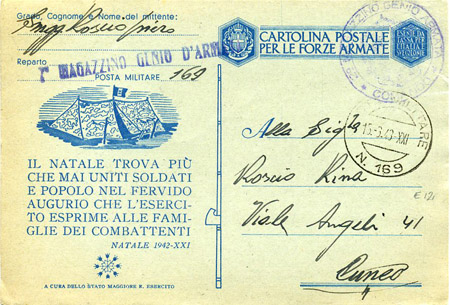 Grado, Cognome e Nome del mittente:
Reparto
1° MAGAZZINO GENIO D'ARMATA
POSTA MILITARE 169
IL NATALE TROVA PIÙ
CHE MAI UNITI SOLDATI
E POPOLO NEL FERVIDO
AUGURIO CHE L'ESERCI-
TO ESPRIME ALLE FAMI-
GLIE DEI COMBATTENTI
NATALE 1942-XXI
A CURA DELLO STATO MAGGIORE R. ESERCITO
CARTOLINA POSTALE
PER LE FORZE ARMATE
MAGAZZINO GENIO ARMATA
MILITARE
N. 169
Alla Sig
Roscio Rina
Viale Angeli 41
Cuneo
€ 121